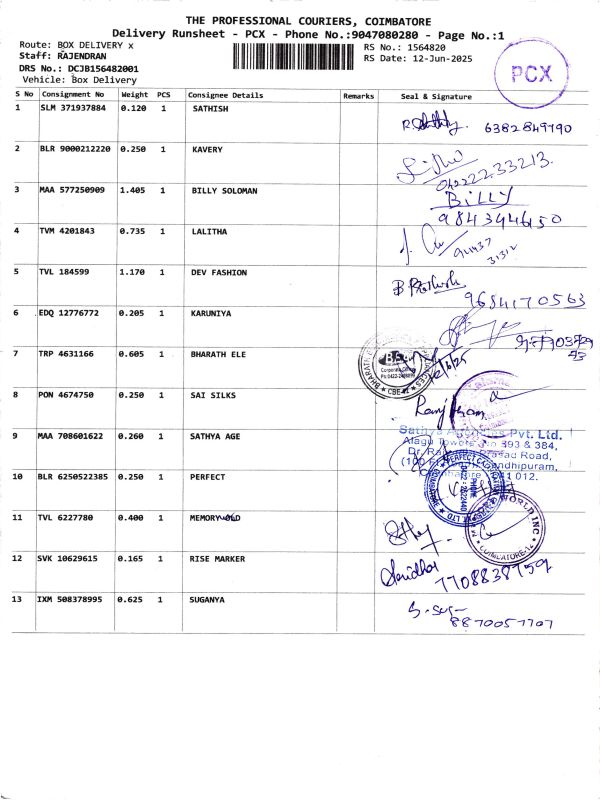 THE PROFESSIONAL COURIERS, COIMBATORE
Delivery Runsheet - PCX - Phone No.:9047080280 - Page No.:1
Route: BOX DELIVERY x
RS No.: 1564820
Staff: RAJENDRAN
RS Date: 12-Jun-2025
DRS No.: DCJB156482001
Vehicle: Box Delivery
PCX
S No Consignment No Weight PCS Consignee Details Remarks Seal & Signature
1 SLM 371937884 0.120 1 SATHISH
6382849790
2 BLR 9000212220 0.250 1 KAVERY
04222233213
3 MAA 577250909 1.405 1 BILLY SOLOMAN
BILLY
984344650
4 TVM 4201843 0.735 1 LALITHA
5 TVL 184599 1.170 1 DEV FASHION
9684170563
6 EDQ 12776772 0.205 1 KARUNIYA
7 TRP 4631166 0.605 1 BHARATH ELE
8 PON 4674750 0.250 1 SAI SILKS
9 MAA 708601622 0.260 1 SATHYA AGE
Pvt. Ltd.
Alagu Towers No 393 & 384,
Road,
Gandhipuram,
012.
10 BLR 6250522385 0.250 1 PERFECT
11 TVL 6227780 0.400 1 MEMORY OLD
WORLD INC
COIMBATORE-12
12 SVK 10629615 0.165 1 RISE MARKER
7708838759
13 IXM 508378995 0.625 1 SUGANYA
8870057707